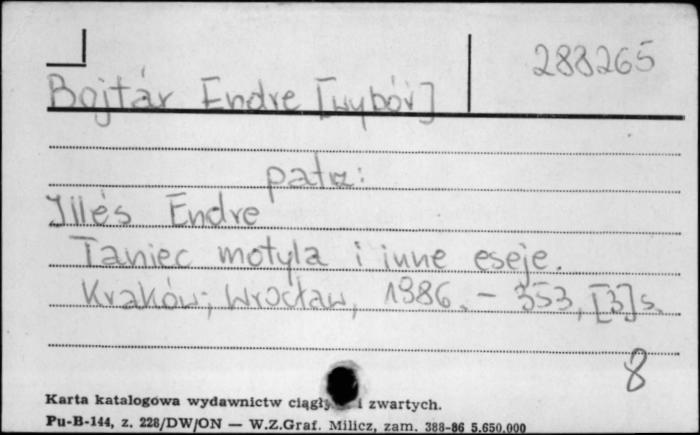 288265
Bojtár Endre [wybór]
patrz:
Illés Endre
Taniec motyla i inne eseje.
Kraków; Wrocław, 1986. – 353, [3] s.
8
Karta katalogowa wydawnictw i zwartych.
Pu-B-144, z. 228/DW/ON — W.Z.Graf. Milicz, zam. 388-86 5.650.000